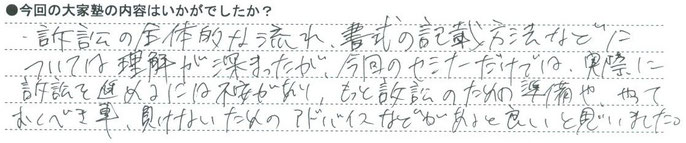 ●今回の大家塾の内容はいかがでしたか？
・訴訟の全体的な流れ、書式の記載方法などに
ついては理解が深まったが、今回のセミナーだけでは、実際に
訴訟を進めるには不安があり、もっと訴訟のための準備や、やって
おくべき事、負けないためのアドバイスなどがあると良いと思いました。